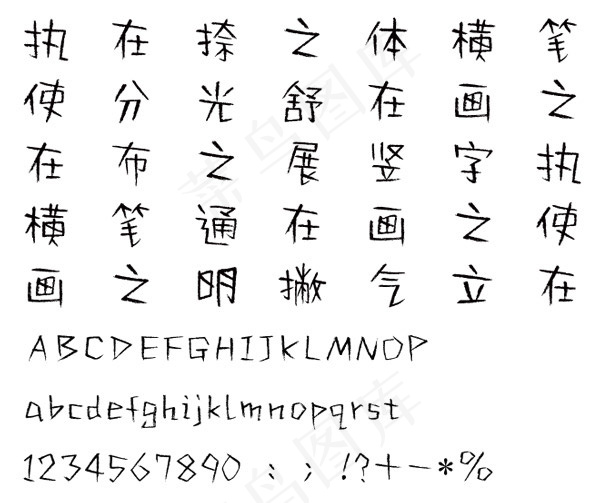 执在捺之体横笔
使分光舒在画之
在布之展竖字执
横笔通在画之使
画之明撇气立在
ABCDEFGHIJKLMNOP
abcdefghijklmnopqrst
1234567890 : ; !?+-*%
菜鸟图库
菜鸟图库